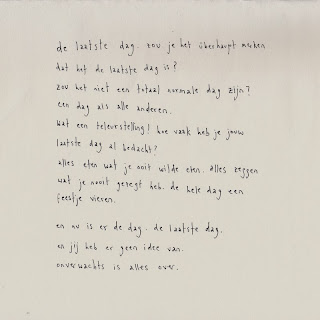 de laatste dag. zou je het überhaupt merken
dat het de laatste dag is?
zou het niet een totaal normale dag zijn?
een dag als alle anderen.
wat een teleurstelling! hoe vaak heb je jouw
laatste dag al bedacht?
alles eten wat je ooit wilde eten. alles zeggen
wat je nooit gezegt heb. de hele dag een
feestje vieren.
en nu is er de dag. de laatste dag.
en jij heb er geen idee van.
onverwachts is alles over.